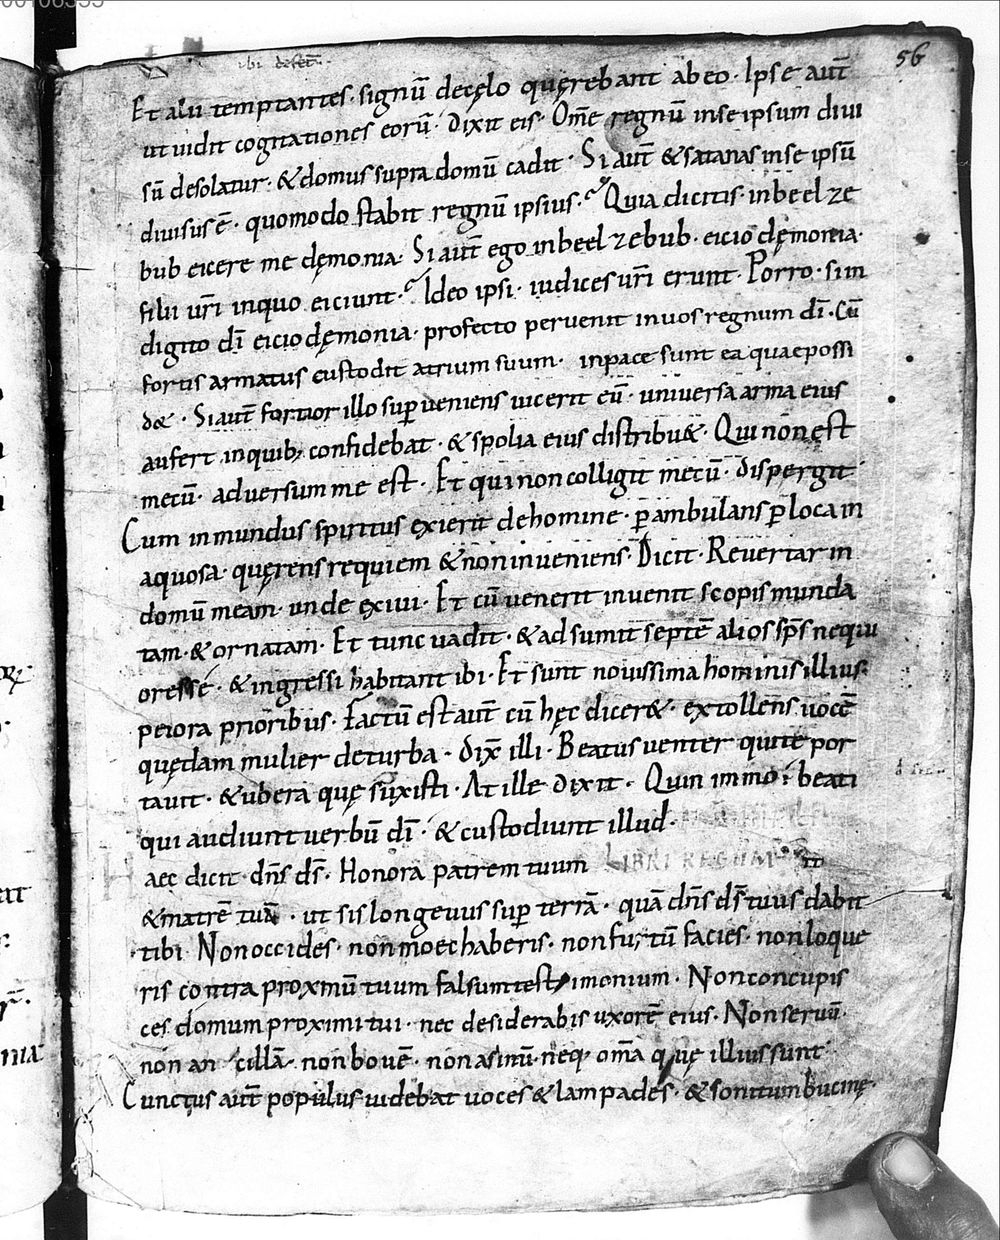 00106355
ibi defect̄.
56
Et alii temptantes · signū decęlo quęrebant abeo · Ipse aut̄
ut uidit cogitationes eorū · Dixit eis · Om̄e regnū inseipsum diui
sū desolatur · & domus supra domū cadit · Si aut̄ & satanas inse ipsū
diuisus ē · quomodo stabit regnū ipsius · Quia dicitis · inbeelze
bub eicere me dęmonia · Si aut̄ ego inbeelzebub · eicio dęmonia ·
filii ur̄i inquo eiciunt · Ideo ipsi · iudices ur̄i erunt · Porro · sim
digito dī eicio dęmonia · profecto peruenit inuos regnum dī · Cū
fortis armatus custodit atrium suum · inpace sunt ea quae possi
d& · Si aut̄ fortior illo sup̄ueniens uicerit eū · uniuersa arma eius
aufert inquib; confidebat · & spolia eius distribu& · Qui non ęst
mecū · aduersum me est · Et qui non colligit mecū · dispergit
Cum inmundus spiritus exierit dehomine · p̱ambulans p̱ loca in
aquosa · quęrens requiem & non inueniens · Dicit · Reuertar in
domū meam · unde ęxiui · Et cū uenerit inuenit scopis munda
tam · & ornatam · Et tunc uadit · & ad sumit septē alios sp̄s nequi
oresse · & ingressi habitant ibi · Et sunt nouissima hominis illius ·
peiora prioribus · Factū est aut̄ cū hęc dicer& · extollens uocē
quędam mulier deturba · dix̄ illi · Beatus uenter qui te por
tauit · & ubera quę suxisti · At ille dixit · Quin immo · beati
qui audiunt uerbū dī · & custodiunt illud ·
LIBRI REGUM
Haec dicit dn̄s ds̄ · Honora patrem tuum
& matrē tuā · ut sis longeuus sup̄ terrā · quā dn̄s ds̄ tuus dabit
tibi · Non occides · non moechaberis · non furtū facies · non loque
ris contra proxmū tuum falsum testimonium · Non concupis
ces domum proximi tui · nec desiderabis uxorē eius · Non seruū ·
non an cillā · non bouē · non asinū · neq; om̄a quę illius sunt
Cunctus aut̄ populus uidebat uoces & lampades · & sonitum bucinę ·